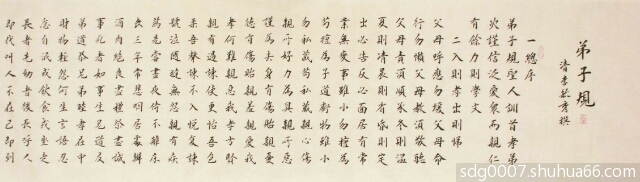 弟子規
清李毓秀撰
一總序
弟子規聖人訓首孝弟
次謹信泛愛衆而親仁
有餘力則學文
二入則孝出則悌
父母呼應勿緩父母命
行勿懶父母教須敬聽
父母責須順承冬則溫
夏則清晨則省昏則定
出必告反必面居有常
業無變事雖小勿擅為
苟擅為子道虧物雖小
勿私藏苟私藏親心傷
親所好力為具親所惡
謹為去身有傷貽親憂
德有傷貽親羞親愛我
孝何難親惡我孝方賢
親有過諫使更怡吾色
柔吾聲諫不入悅復諫
號泣隨撻無怨親有疾
藥先嘗晝夜侍不離床
喪三年常悲咽居處辨
酒肉絕喪盡禮祭盡誠
事死者如事生兄道友
弟道恭兄弟睦孝在中
財物輕怨何生言語忍
忿自泯或飲食或坐走
長者先幼者後長呼人
即代叫人不在己即到
sdg0007.shuhua66.com